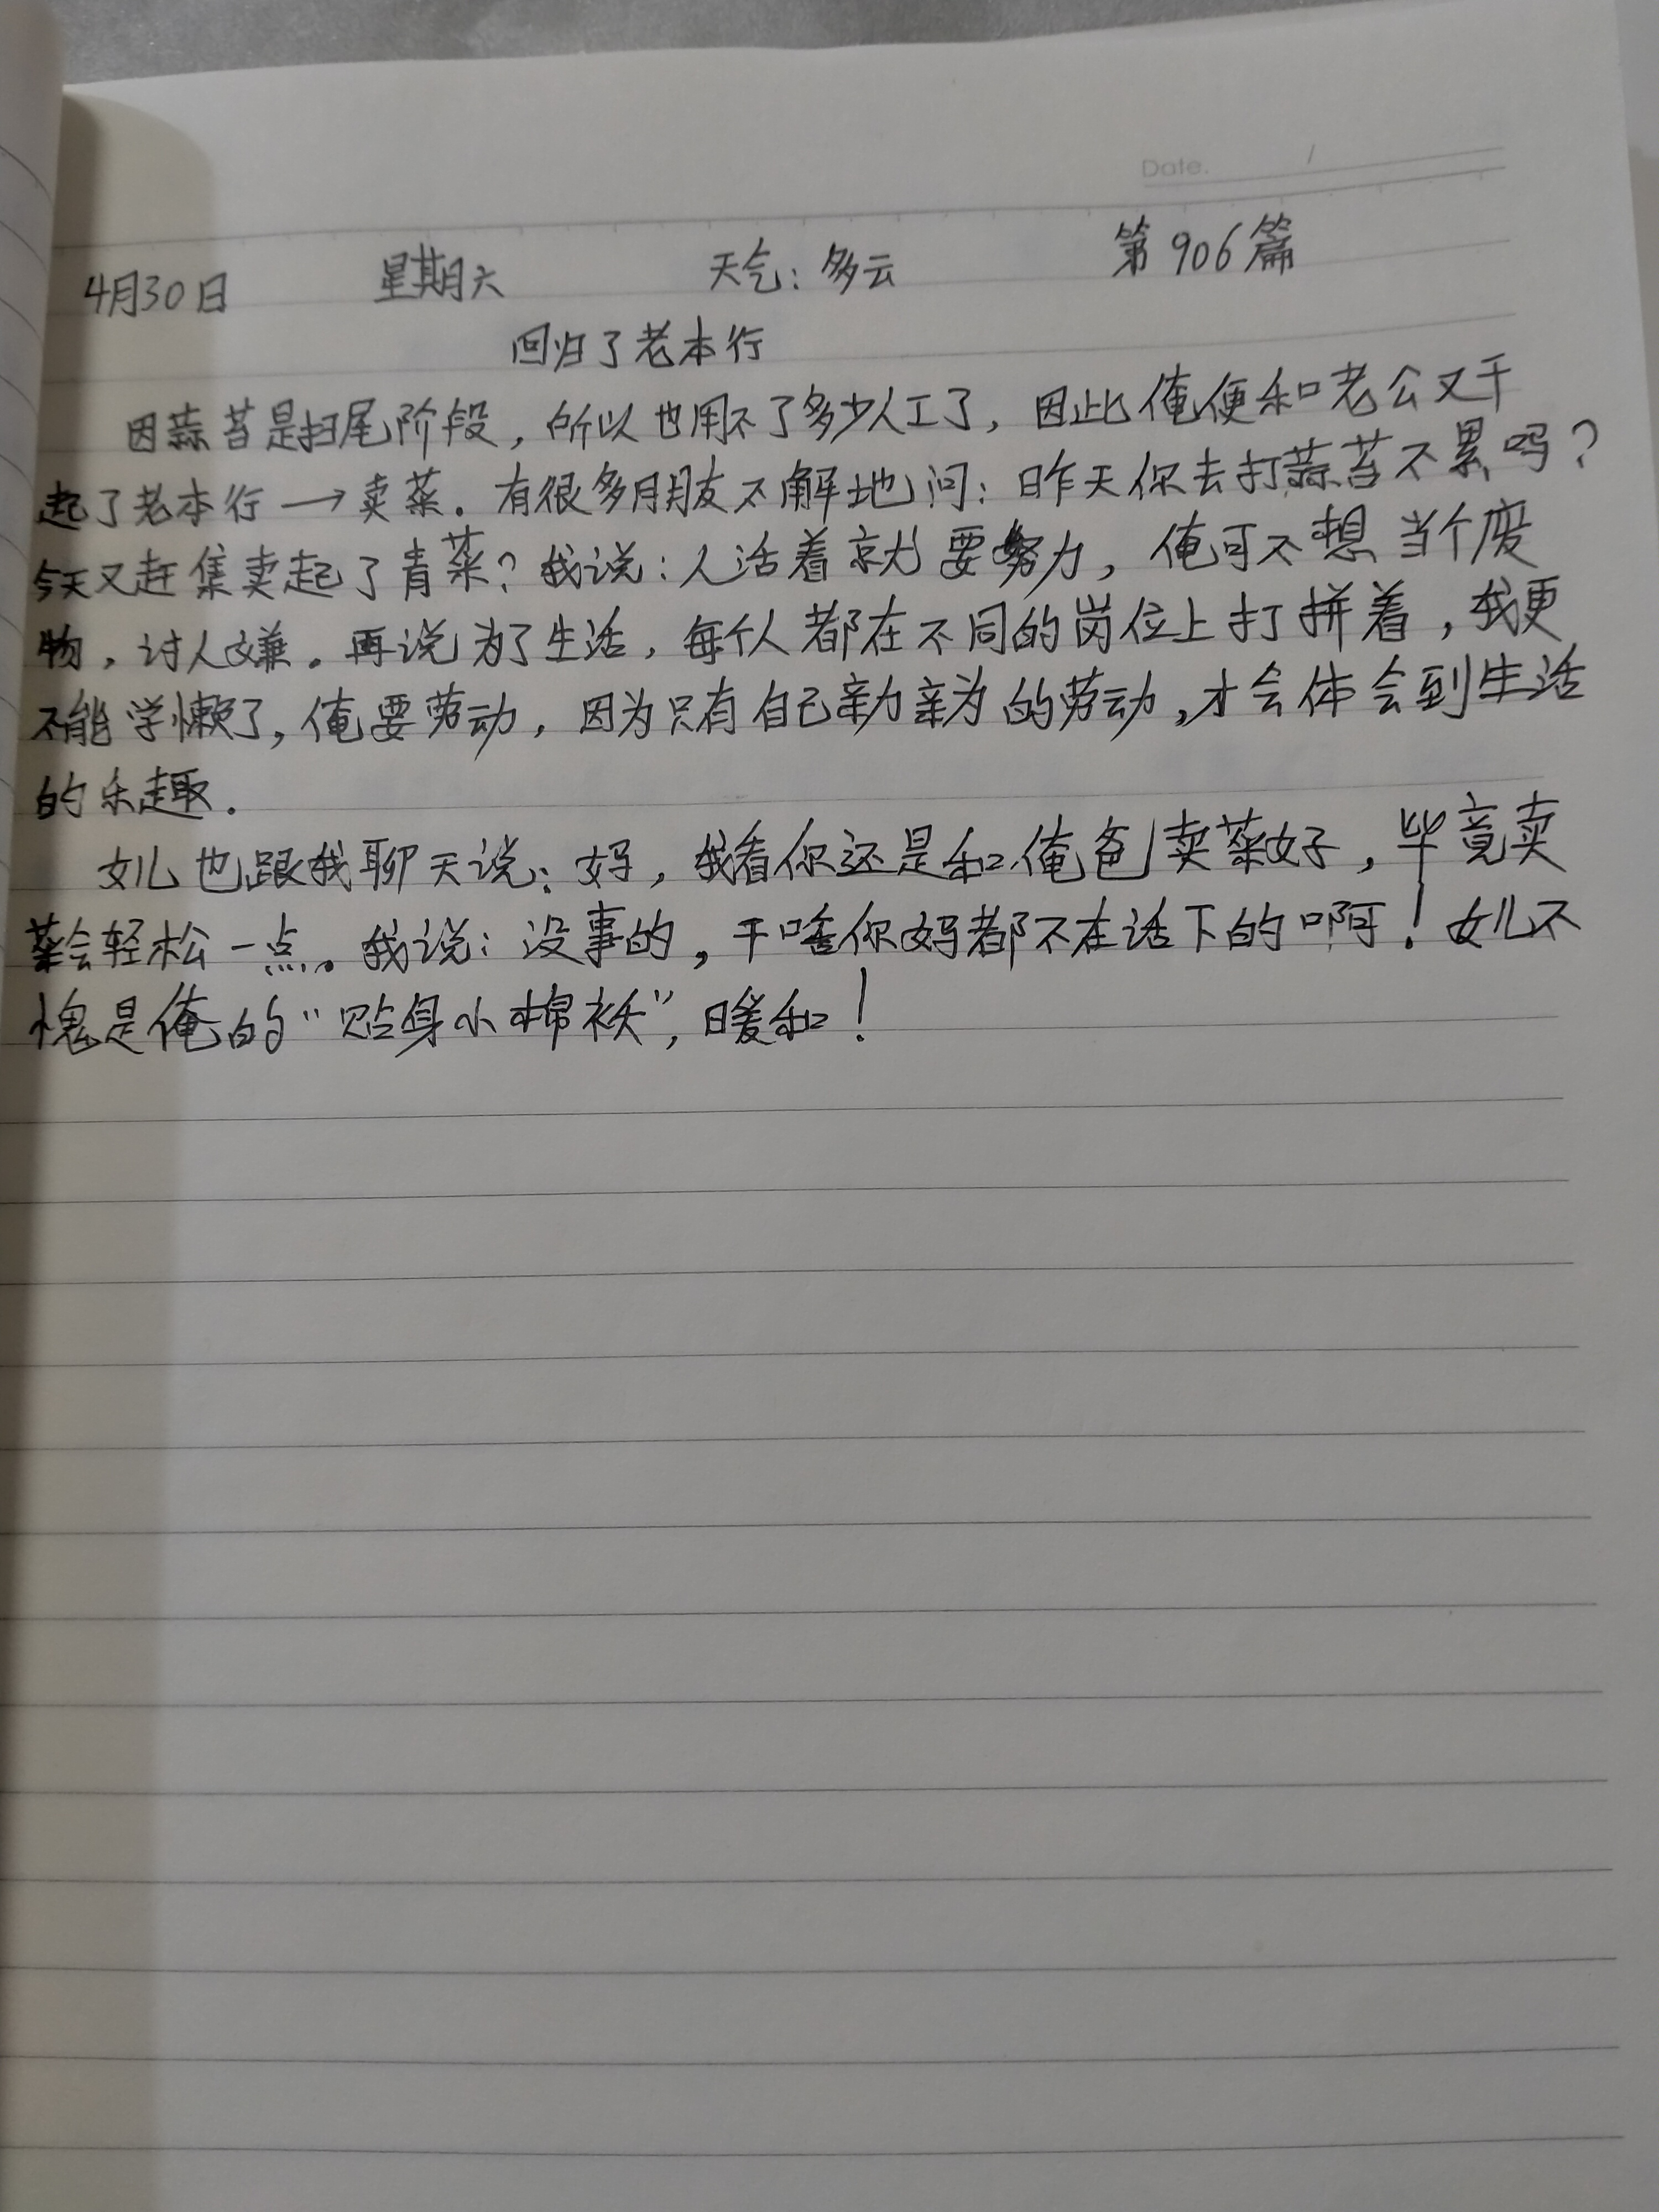 Date. /
4月30日 星期六 天气：多云 第906篇
回归了老本行
因蒜苔是扫尾阶段，所以也用不了多少人工了，因此俺便和老公又干
起了老本行→卖菜．有很多朋友不解地问：昨天你去打蒜苔不累吗？
今天又赶集卖起了青菜？我说：人活着就要努力，俺可不想当个废
物，讨人嫌。再说为了生活，每个人都在不同的岗位上打拼着，我更
不能学懒了，俺要劳动，因为只有自己亲力亲为的劳动，才会体会到生活
的乐趣．
女儿也跟我聊天说：妈，我看你还是和俺爸卖菜好，毕竟卖
菜会轻松一点。我说：没事的，干啥你妈都不在话下的啊！女儿不
愧是俺的“贴身小棉袄”，暖和！